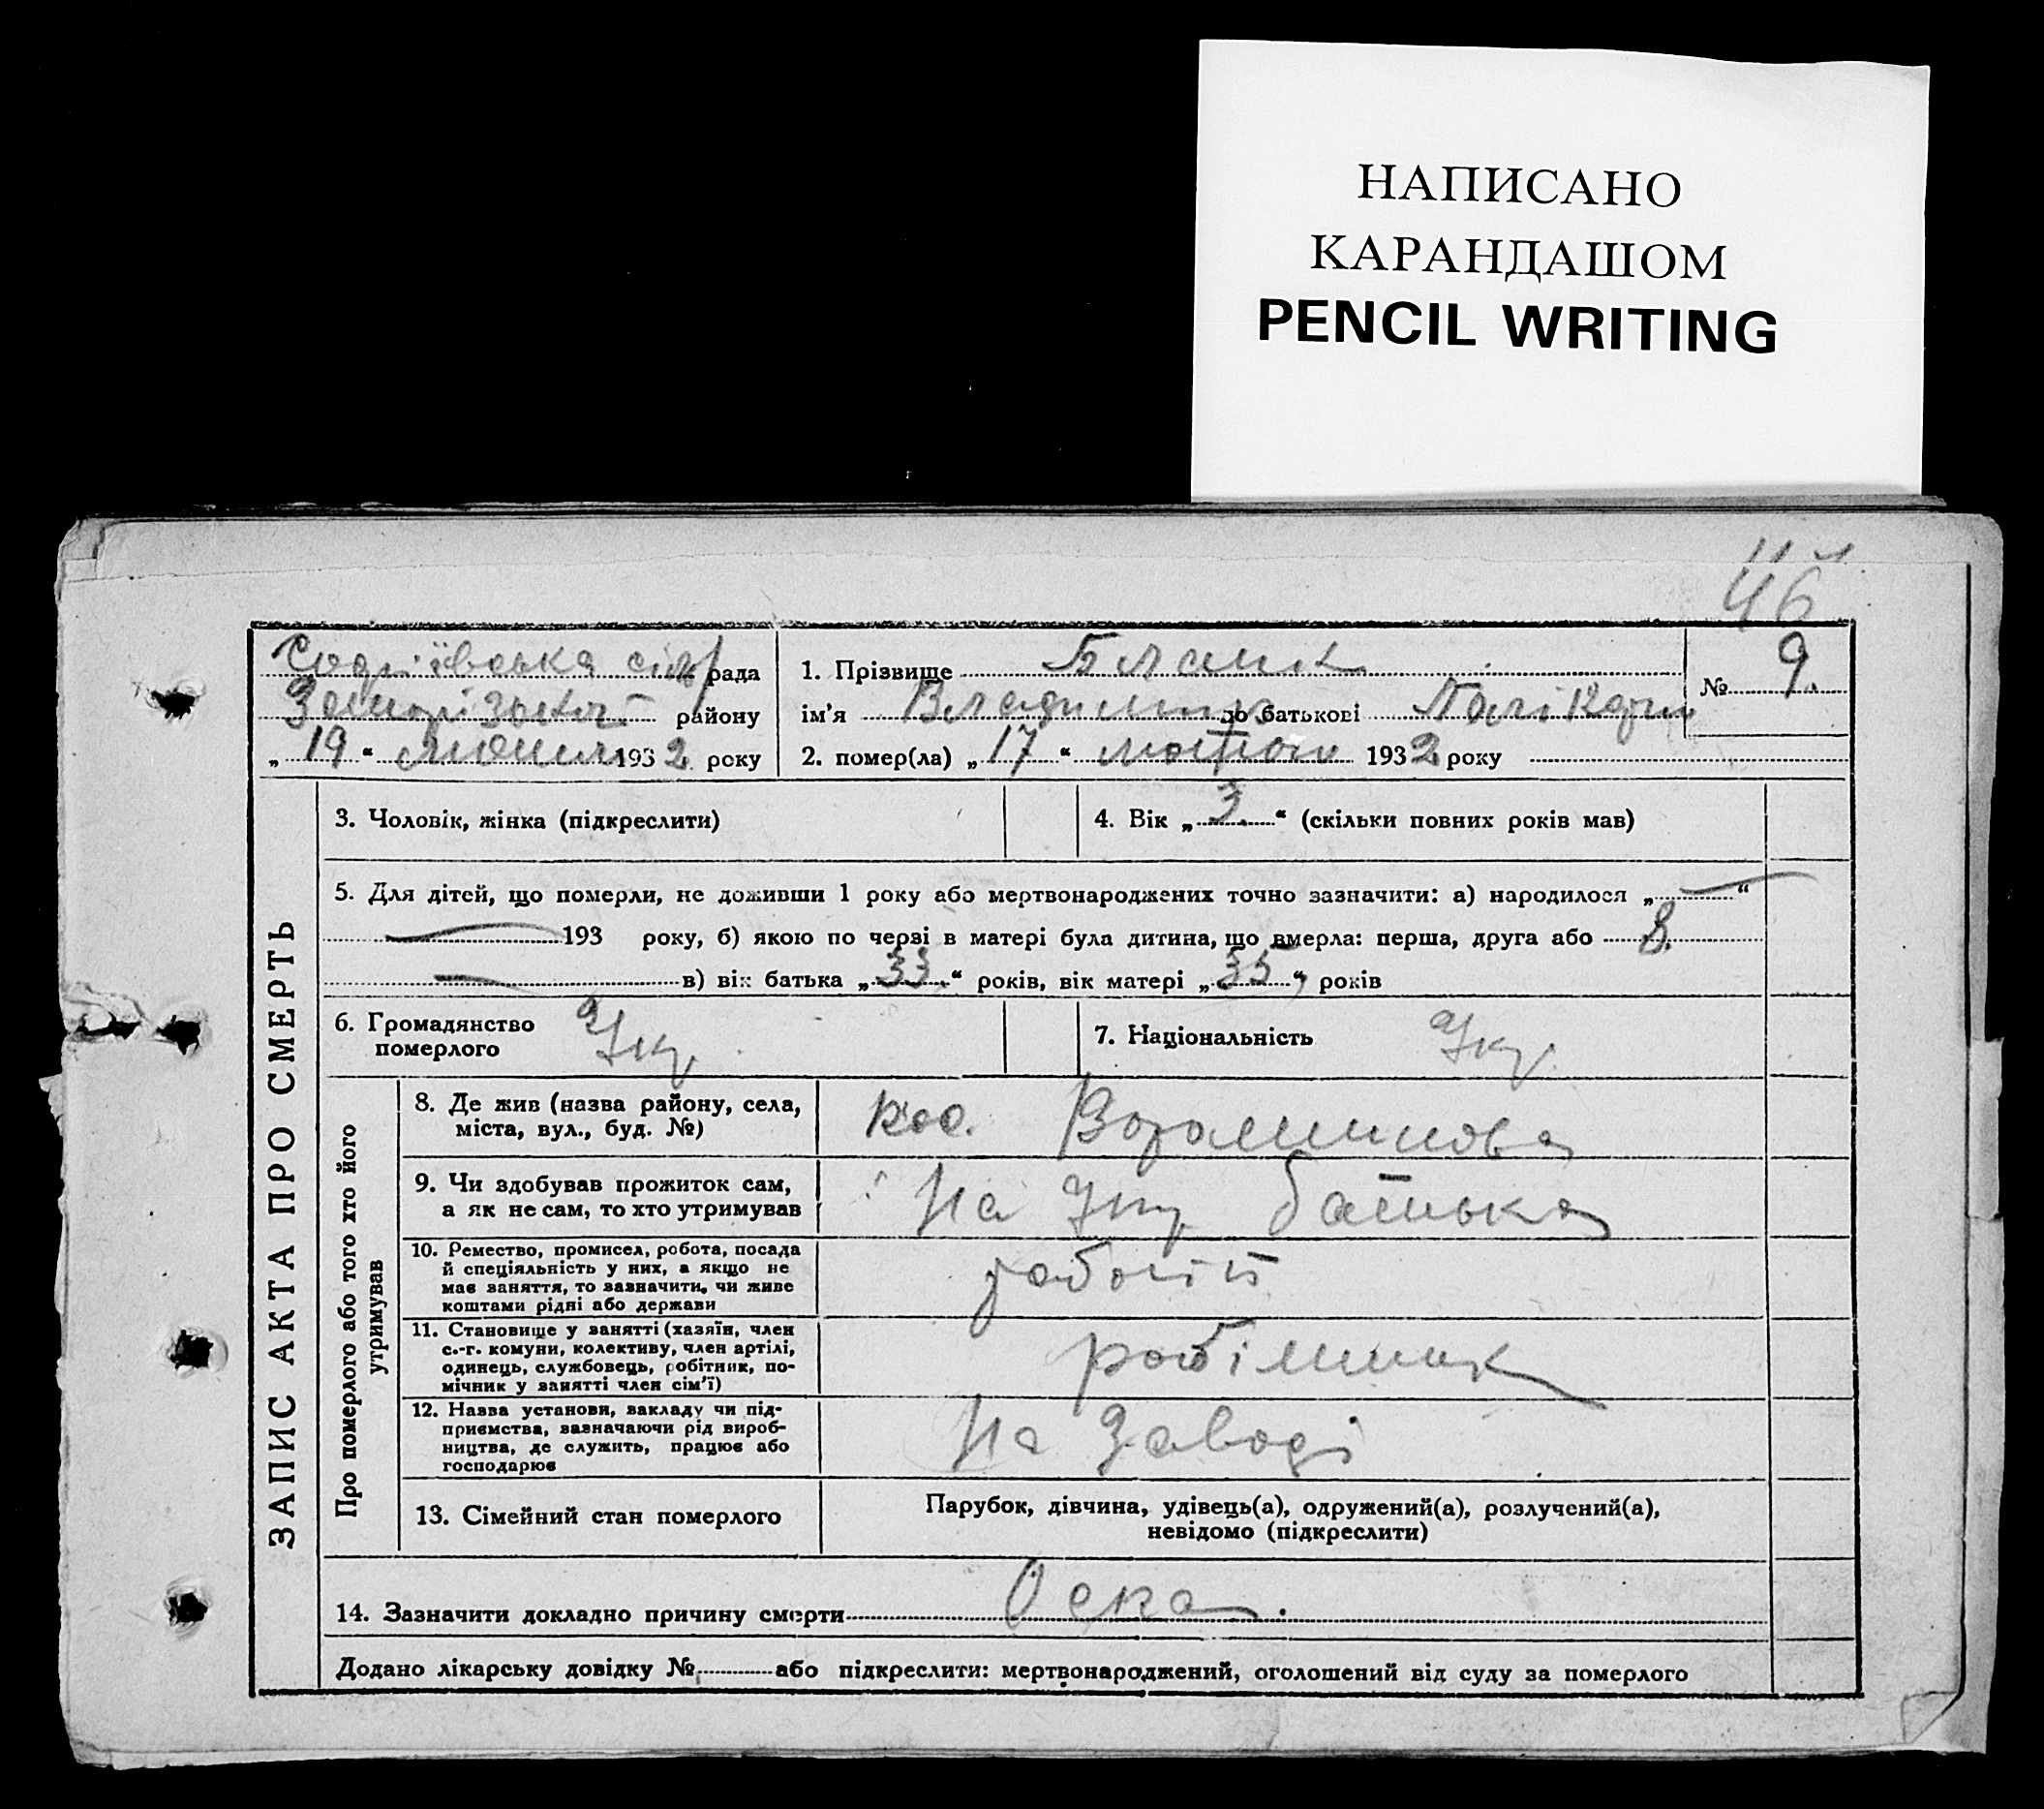 НАПИСАНО
КАРАНДАШОМ
PENCIL WRITING
46
сіль рада
1. Прізвище Бланк
№ 9.
району
ім'я Владимир по батькові
„ 19 “ 1932 року
2. помер(ла) „ 17 “ лютого 1932 року
ЗАПИС АКТА ПРО СМЕРТЬ
3. Чоловік, жінка (підкреслити)
4. Вік „ 3. “ (скільки повних років мав)
5. Для дітей, що померли, не доживши 1 року або мертвонароджених точно зазначити: а) народилося „ — “
— 193 року, б) якою по черзі в матері була дитина, що вмерла: перша, друга або 8.
— в) вік батька „ 33 “ років, вік матері „ 35 “ років
6. Громадянство
померлого
Укр.
7. Національність
Укр.
Про померлого або того хто його
утримував
8. Де жив (назва району, села,
міста, вул., буд. №)
кос.
9. Чи здобував прожиток сам,
а як не сам, то хто утримував
На утр. батька
10. Ремество, промисел, робота, посада
й спеціяльність у них, а якщо не
має заняття, то зазначити, чи живе
коштами рідні або держави
11. Становище у занятті (хазяїн, член
с.-г. комуни, колективу, член артілі,
одинець, службовець, робітник, по-
мічник у занятті член сім'ї)
робітник
12. Назва установи, закладу чи під-
приємства, зазначаючи рід вироб-
ництва, де служить, працює або
господарює
На Заводі
13. Сімейний стан померлого
Парубок, дівчина, удівець(а), одружений(а), розлучений(а),
невідомо (підкреслити)
14. Зазначити докладно причину смерти Оспа.
Додано лікарську довідку № або підкреслити: мертвонароджений, оголошений від суду за померлого